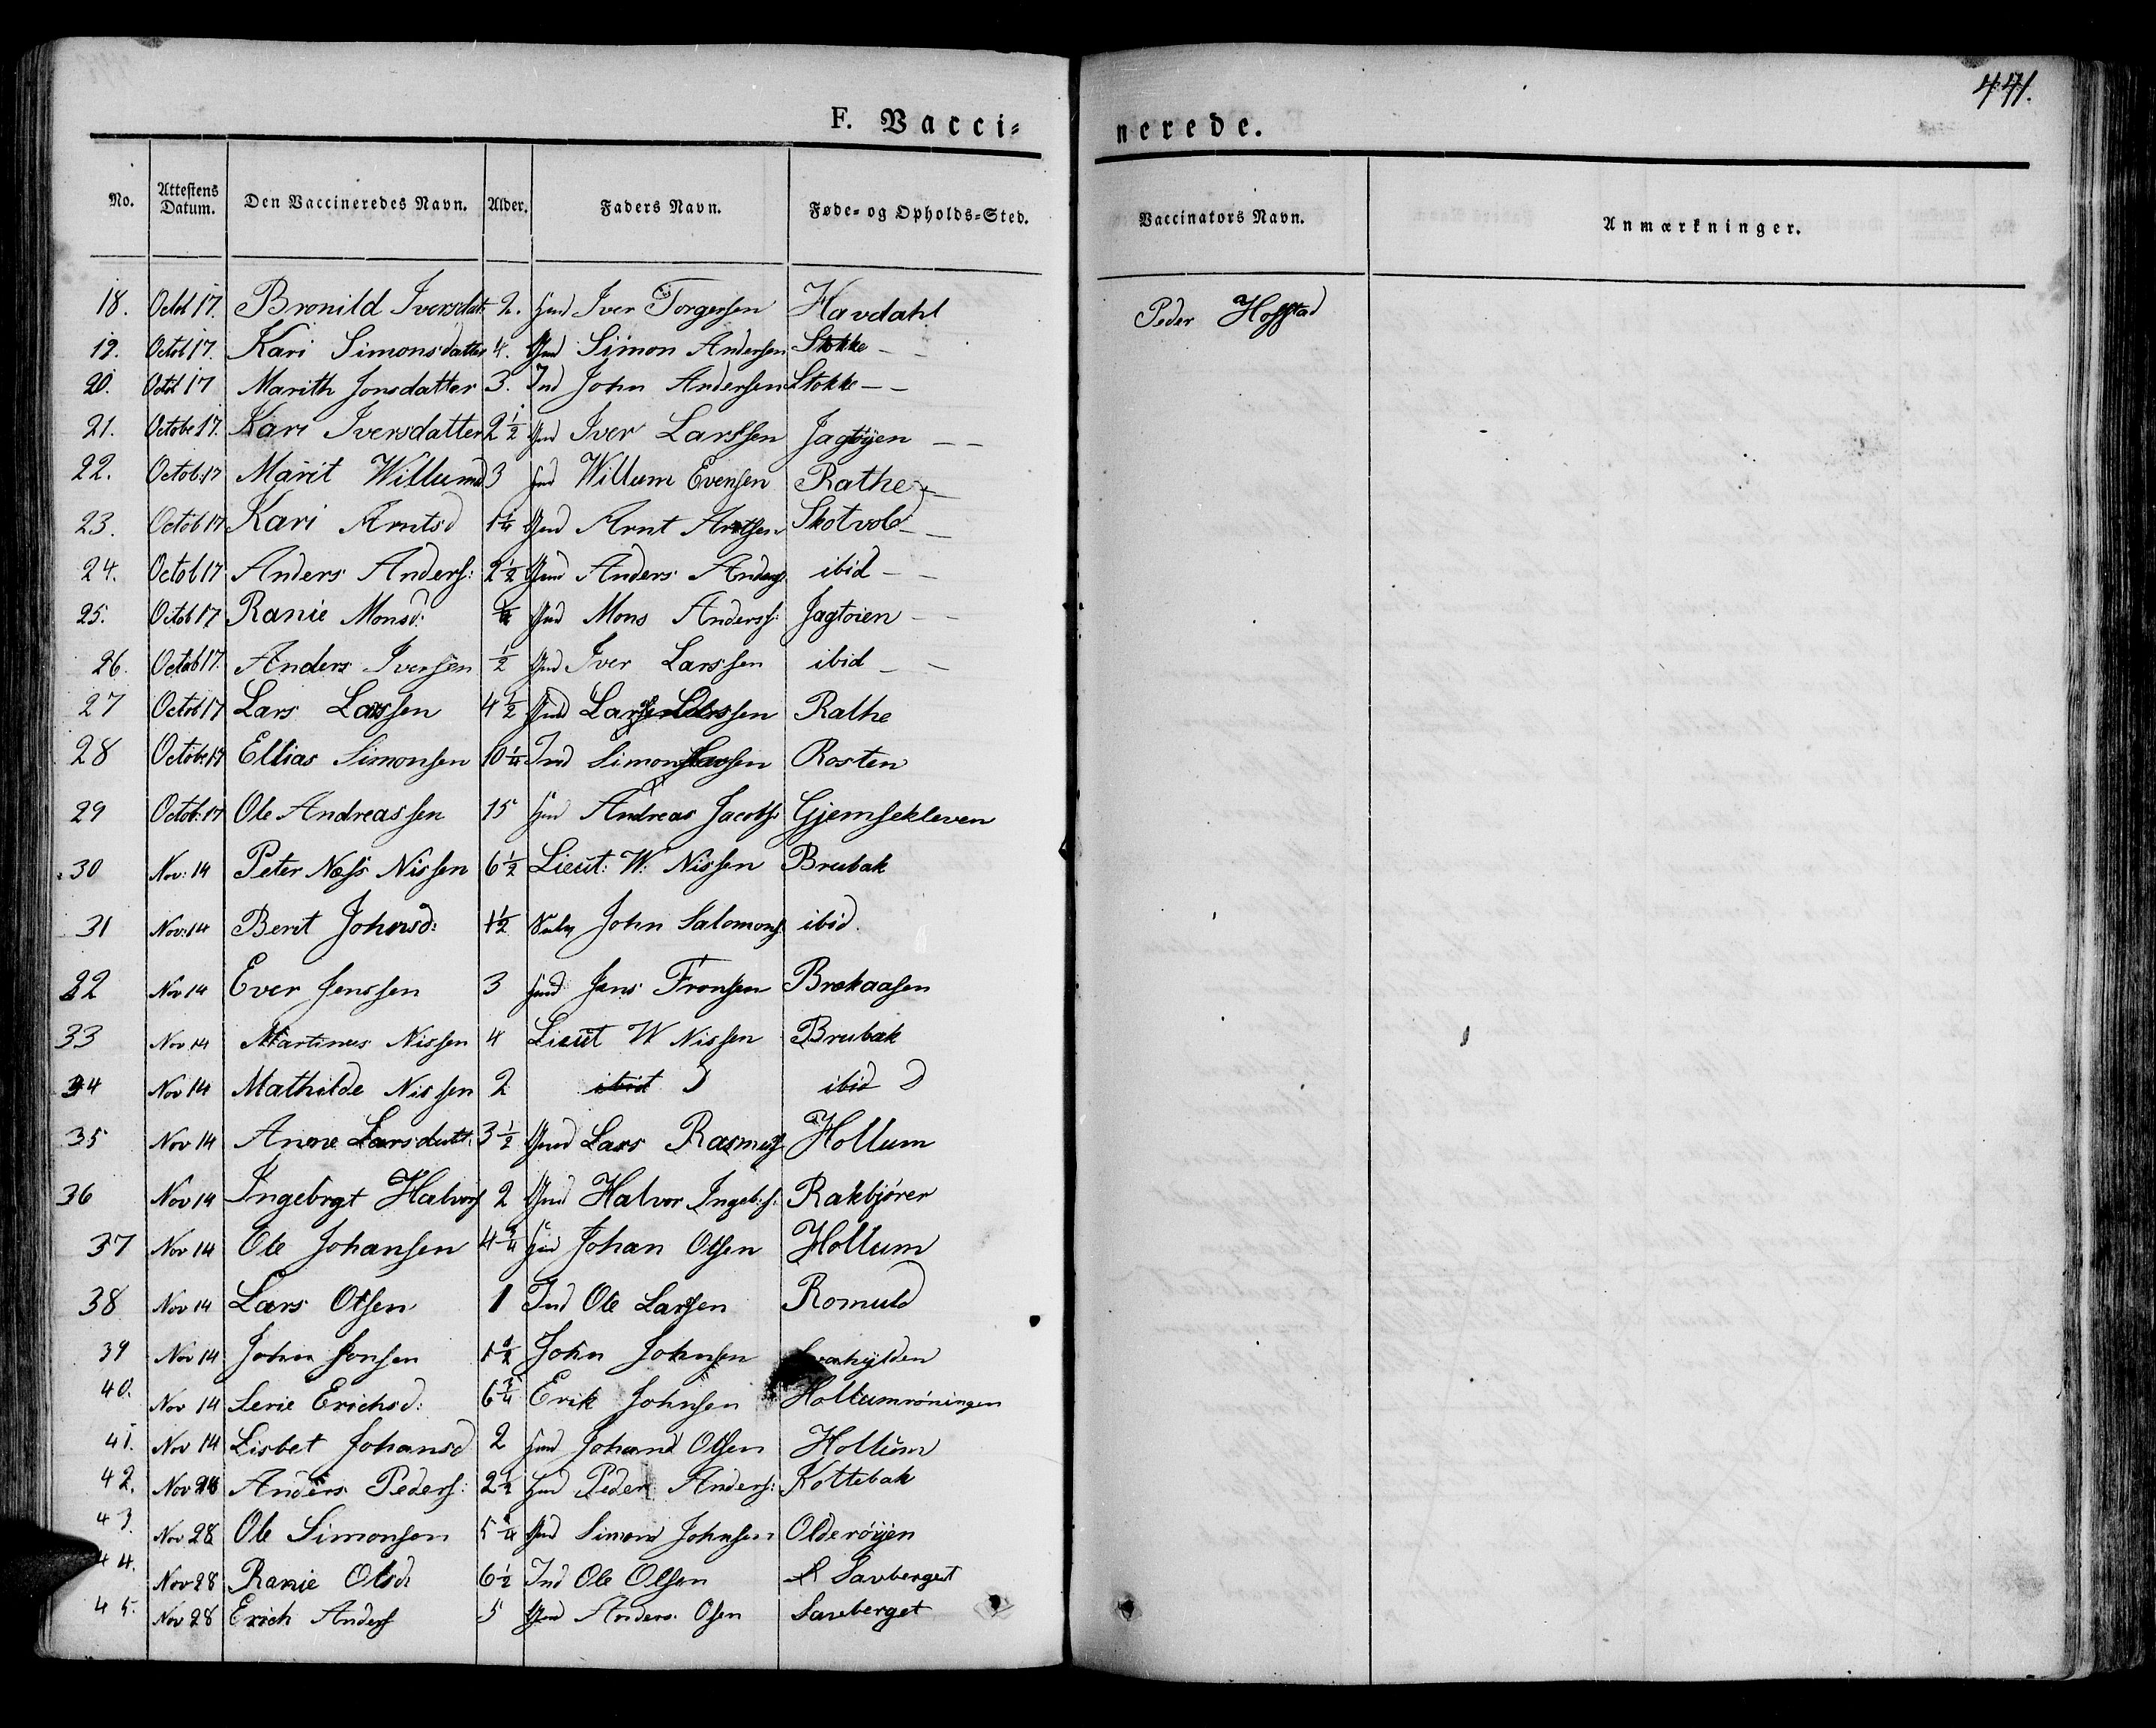 441.
F. Vacci=
nerede.
No. Attestens Datum. Den Vaccineredes Navn. Alder. Faders Navn. Føde- og Opholds-Sted. Vaccinators Navn. Anmærkninger.
18. Octol 17. Bronild Iversdat: 2. Iver Torgersen Havdahl Peder Hofstad
19. Octob 17. Kari Simonsdatter 4. Gmd Simon Andersen Stokke - -
20. Octol 17 Marith Jonsdatter 3. Ind John Andersen Stokke - -
21. Octobe 17. Kari Iversdatter 2 1/2 Gmd Iver Larssen Jagtøyen - -
22. Octob: 17 Marit Willumsd 3 Willum Evensen Rathe - -
23. Octob 17 Kari Arntsd 1 1/4 Gmd Arnt Arntsen Skotvold - -
24. Octob 17 Anders Anders: 2 1/2 Gmd Anders Anders ibid - -
25. Octob 17 Ranie Monsd: Gmd Mons Anders: Jagtøien - -
26. Octob 17. Anders Iversen 1/2 Gmd Iver Larssen ibid - -
27 Octob 17 Lars Larssen 4 1/2 Gmd Rathe
28 Octobe 17 Ellias Simonsen 10 1/4 Ind Simon Rosten
29 Octob: 17 Ole Andreassen 15 Andreas Jacobs: Gjemsekleven
30 Nov: 14 Peter Næss Nissen 6 1/2 Lieut: W: Nissen Brubak
31 Nov: 14 Berit Johnsd: 1 1/2 John Salomons ibid.
32 Nov 14 Ever Jenssen 3 Jens Tronsen Brekaasen
33 Nov 14 Martinus Nissen 4 Lieut W Nissen Brubak
34 Nov 14 Mathilde Nissen 2 ibid D ibid D
35 Nov 14 Anne Larsdatt: 3 1/2 Gmd Lars Rasmus Hollum
36 Nov 14 Ingebrgt Halvors 2 Gmd Halvor Ingeb:s: Rakbjører
37 Nov 14 Ole Johansen 4 3/4 Johan Olsen Hollum
38 Nov 14 Lars Olsen 1 Ind Ole Larsen Romuld
39 Nov 14 John Jonsen 1 1/2 John Johnsen
40. Nov 14 Serie Erichsd: 6 3/4 Erik Johnsen Hollumrøningen
41. Nov 14 Lisbet Johansd 2 Johan Olsen Hollum
42. Nov Anders Peders: 2 1/2 Peder Anders: Kottebak
43. Nov 28 Ole Simonsen Gmd Simon Johnsen Olderøyen
44. Nov 28 Ranie Olsd: 6 1/2 Ind Ole Olsen Savberget
45. Nov 28 Erich Anders 5 Gmd Anders Osen Sauberget